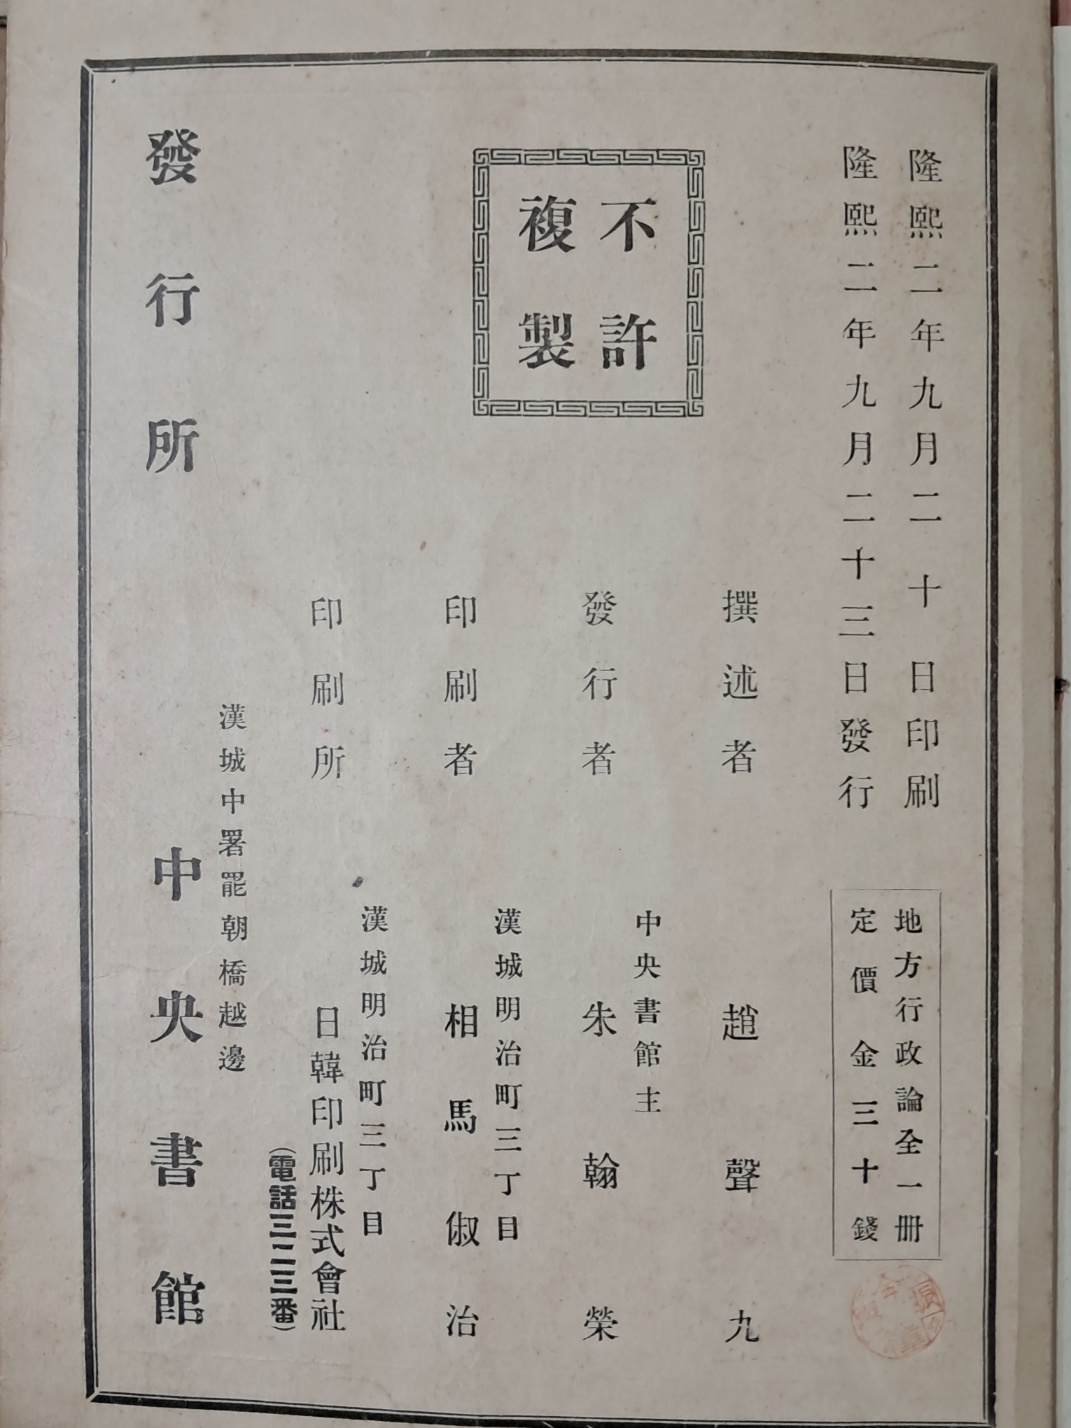 隆熙二年九月二十日印刷
隆熙二年九月二十三日發行
地方行政論全一冊
定價金三十錢
撰述者 趙聲九
不許
複製
中央書館主
發行者 朱翰榮
漢城明治町三丁目
印刷者 相馬俶治
漢城明治町三丁目
印刷所 日韓印刷株式會社
(電話三二三番)
漢城中署罷朝橋越邊
發行所 中央書館